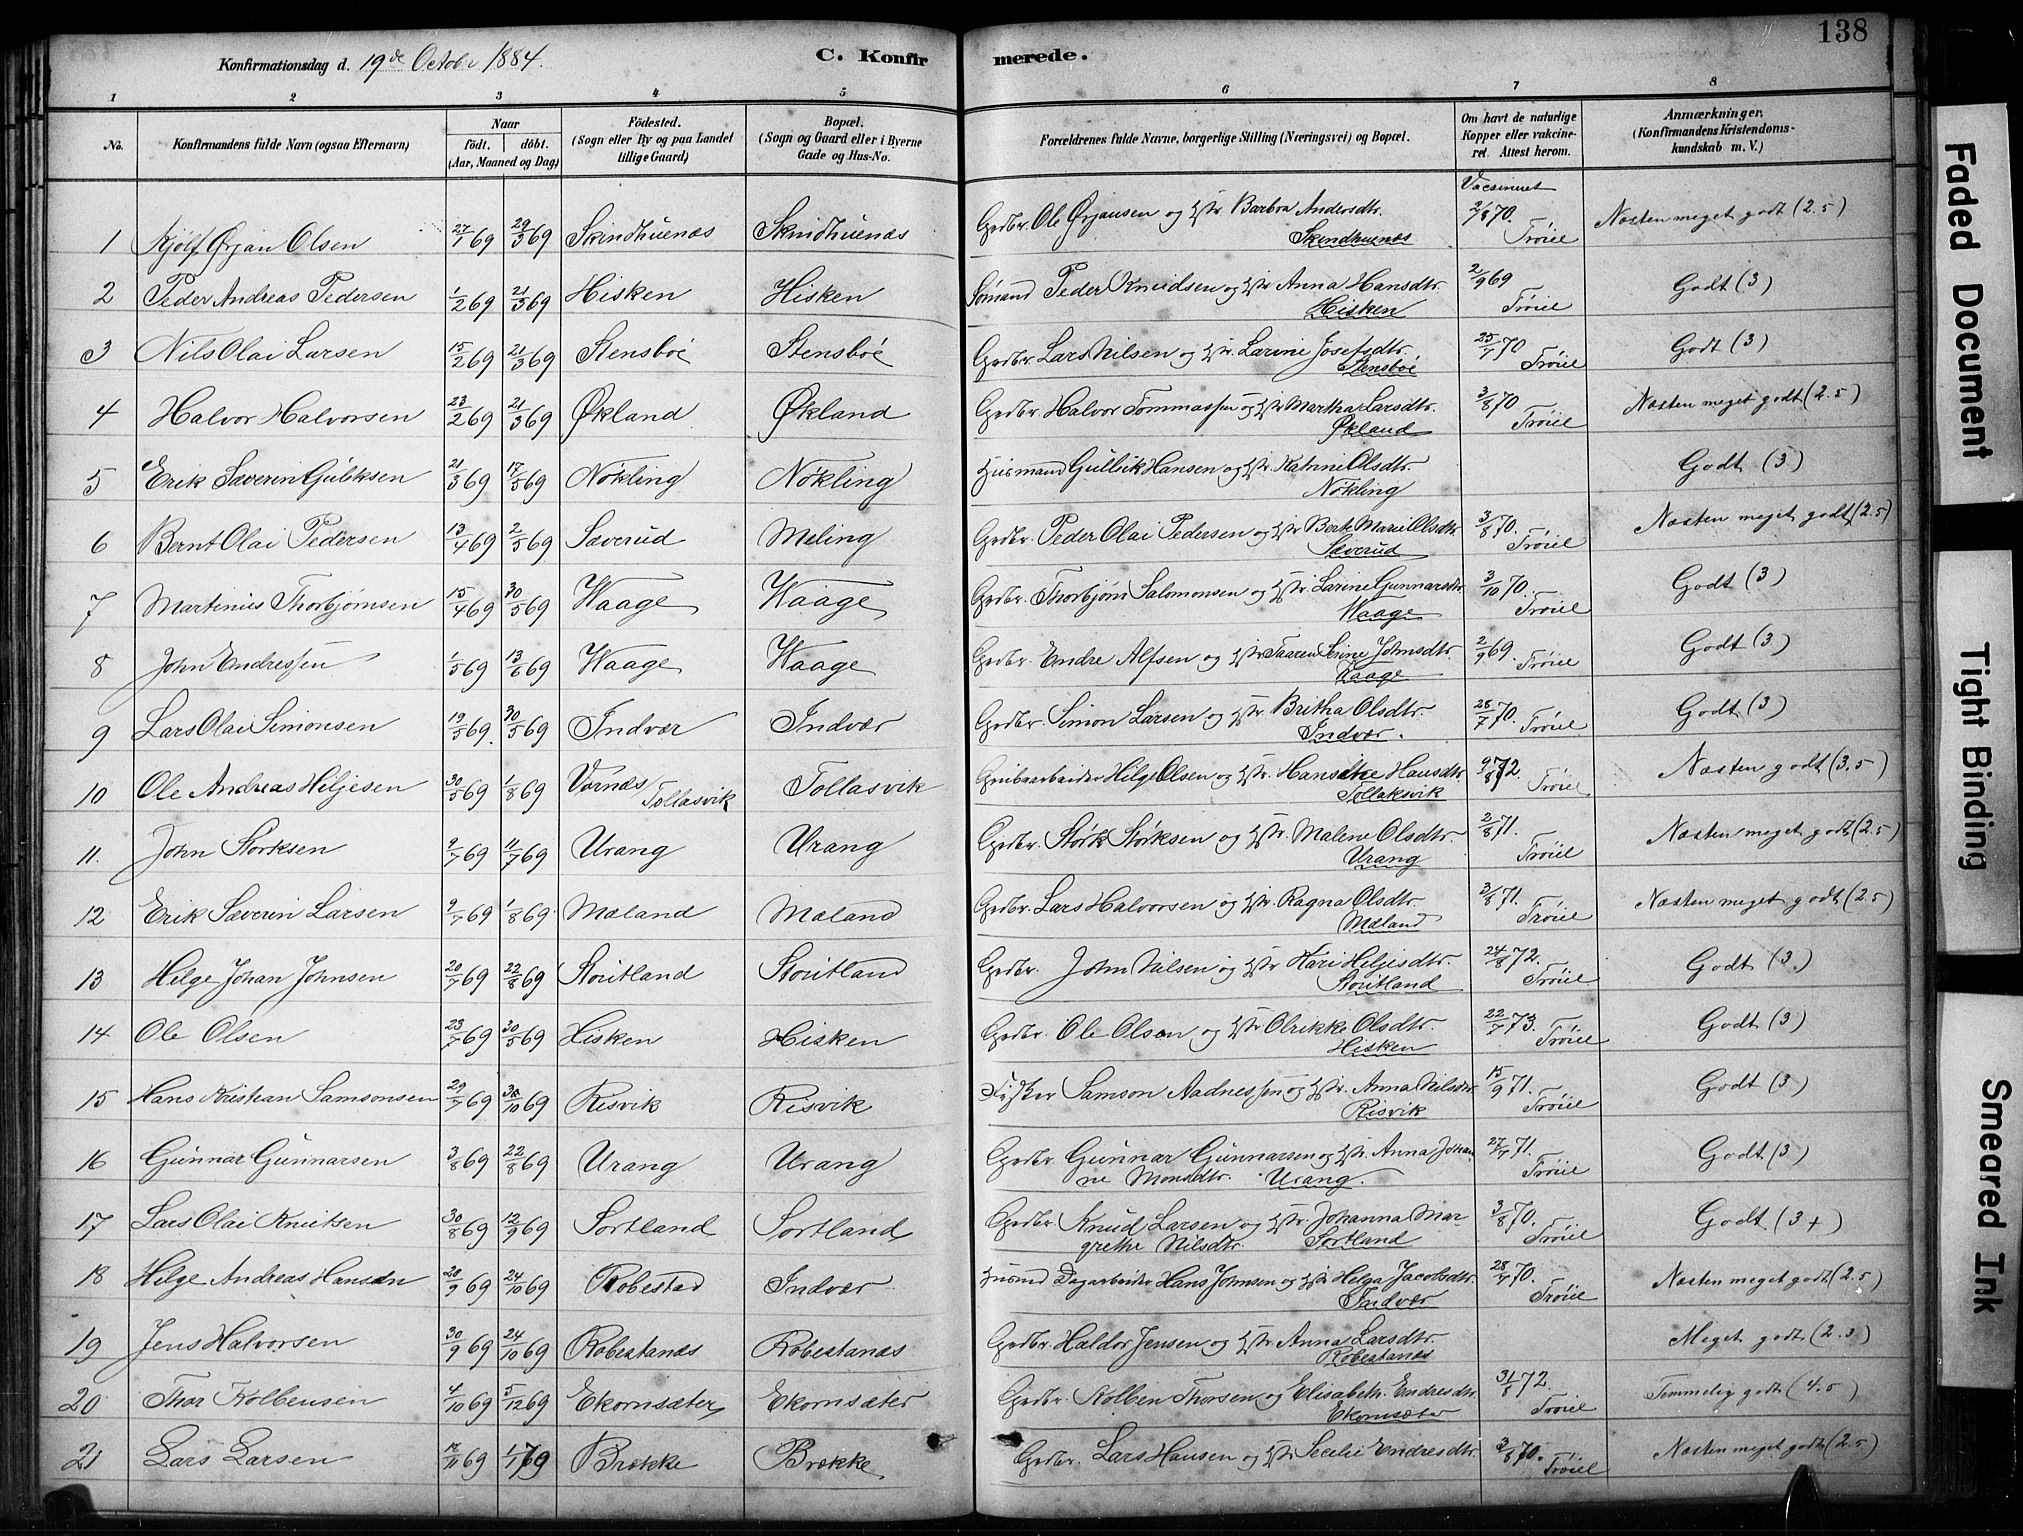 138
Konfirmationsdag d. 19de Octobr 1884.
C. Konfirmerede.
1 2 3 4 5 6 7 8
No. Konfirmandens fulde Navn (ogsaa Efternavn) Naar födt. döbt. (Aar, Maaned og Dag) Födested. (Sogn eller By og paa Landet tillige Gaard) Bopæl. (Sogn og Gaard eller i Byerne Gade og Hus-No. Forældrenes fulde Navne, borgerlige Stilling (Næringsvei) og Bopæl. Om havt de naturlige Kopper eller vakcineret. Attest herom. Anmærkninger. (Konfirmandens Kristendomskundskab m. V.)
Vacsineret
1 Kjølf Ørjan Olsen 27/1 69 29/3 69 Skindhuenæs Skindhuenæs Grdbr. Ole Ørjansen og Hstr. Barbra Andersdtr. Skindhuenæs 2/8 70. Trøiel Næsten meget godt (2.5)
2 Peder Andreas Pedersen 1/2 69 21/3 69 Hisken Hisken Sømand Peder Knudsen og Hstr Anna Hansdtr. Hisken 2/9 69 Trøiel Godt (3)
3 Nils Olai Larsen 15/2 69 21/3 69 Stensboe Stensboe Grdbr. Lars Nilsen og Hstr. Larine Josefsdtr. Stensboe 25/7 70 Trøiel Godt (3)
4 Halvor Halvorsen 23/2 69 21/3 69 Økland Økland Grdbr. Halvor Tommassen og Hstr Martha Larsdtr. Økland 3/8 70 Trøiel Næsten meget godt (2.5)
5 Erik Sæverin Gulliksen 21/3 69 17/5 69 Nøkling Nøkling Husmand Gullik Hansen og Hstr. Katrine Olsdtr. Nøkling Godt (3)
6 Bernt Olai Pedersen 13/4 69 2/5 69 Sæverud Meling Grdbr. Peder Olai Pedersen og Hstr Berte Marie Olsdtr. Sæverud 3/8 70. Trøiel Næsten meget godt (2.5)
7 Martinus Thorbjørnsen 15/4 69 30/5 69 Waage Waage Grdbr. Thorbjørn Salomonsen og Hstr. Larine Gunnarsdtr. Waage 3/10 70. Trøiel Godt (3)
8 John Endressen 1/5 69 13/6 69 Waage Waage Grdbr. Endre Alfsen og Hstr. Taaren Serine Johnsdtr. Waage 2/9 69. Trøiel Godt (3)
9 Lars Olai Simonsen 19/5 69. 30/5 69 Indvær Indvær Grdbr. Simon Larsen og Hstr. Britha Olsdtr. Indvær. 28/7 70. Trøiel Godt (3)
10 Ole Andreas Hiljesen 30/5 69 1/8 69 Vornæs Tollasvik Tollasvik Grubearbeider Hilge Olsen og Hstr. Hansdtr. Tollaksvik 72. Trøiel Næsten godt (3.5)
11. John Størksen 9/7 69 11/7 69 Urang Urang Grdbr. Størk Størksen og Hstr. Malene Olsdtr. Urang 2/8 71. Trøiel Næsten meget godt (2.5)
12 Erik Sæverin Larsen 9/7 69 1/8 69. Mæland Mæland Grdbr. Lars Halvorsen og Hstr. Ragna Olsdtr. Mæland 3/8 71. Trøiel Næsten meget godt (2.5)
13 Hilge Johan Johnsen 20/7 69 22/8 69 Stoutland Stoutland Grdbr. John Nilsen og Hstr Kari Hiljesdtr. Stoutland 24/8 72. Trøiel Godt (3)
14 Ole Olsen 23/7 69 30/5 69 Hisken Hisken Grdbr. Ole Olsen og Hstr Olrikke Olsdtr. Hisken 22/7 73. Trøiel Godt (3)
15 Hans Kristian Samsonsen 29/7 69 10 69 Risvik Risvik Fisker Samson Aadnessen og Hstr. Anna Nilsdtr. Risvik 15/9 71. Trøiel Godt (3)
16 Gunnar Gunnarsen 3/8 69 22/8 69 Urang Urang Grdbr. Gunnar Gunnarsen og Hstr. Anna Johanne Monsdtr. Urang. 27/7 71. Trøiel Godt (3)
17 Lars Olai Knutsen 30/8 69 12/9 69 Sortland Sortland Grdbr Knud Larsen og Hstr Johanna Margrethe Nilsdtr. Sortland 3/8 70. Trøiel Godt (3+)
18 Hilge Andreas Hansen 20/9 69 24/10 69 Robestad Indvær Husmd Dagarbeider Hans Johnsen og Hstr Helga Jacobsdtr. Indvær 28/7 70. Trøiel Næsten meget godt (2.5)
19 Jens Halvorsen 30/9 69 24/10 69 Robestanæs Robestanæs Grdbr. Haldor Jensen og Hstr Anna Larsdtr. Robestanæs Meget godt (2.3)
20 Thor Kolbensen 4/10 69 5/12 69 Ekornsæter Ekornsæter Grdbr. Kolben Thorsen og Elisabeth Endresdtr. Ekornsæter 31/8 72. Trøiel Temmelig godt (4.5)
21 Lars Larsen 18/11 69 1/1 70 Brække Brække Grdbr. Lars Hansen og Hstr Secelie Endresdtr. 3/8 70. Trøiel Næsten meget godt (2.5)
Faded Document
Tight Binding
Smeared Ink